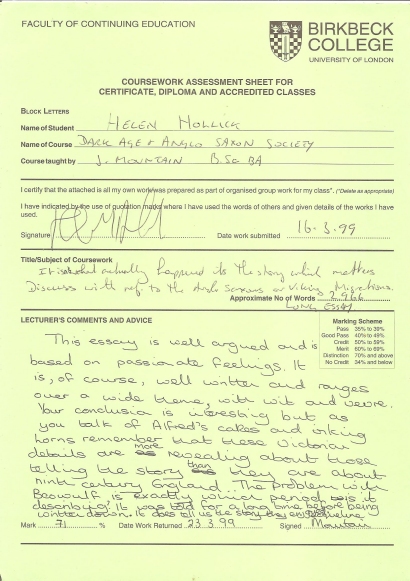 FACULTY OF CONTINUING EDUCATION
BIRKBECK
COLLEGE
UNIVERSITY OF LONDON
COURSEWORK ASSESSMENT SHEET FOR
CERTIFICATE, DIPLOMA AND ACCREDITED CLASSES
BLOCK LETTERS
Name of Student HELEN HOLLICK
Name of Course DARK AGE & ANGLO SAXON SOCIETY
Course taught by J. MOUNTAIN B.Sc BA
I certify that the attached is all my own work/was prepared as part of organised group work for my class*. (*Delete as appropriate)
I have indicated by the use of quotation marks where I have used the words of others and given details of the works I have
used.
Signature Date work submitted 16-3-99
Title/Subject of Coursework
It is not what actually happened its the story which matters
Discuss with ref to the Anglo Saxons or Viking Migrations.
Approximate No of Words 2,966
LONG ESSAY
LECTURER'S COMMENTS AND ADVICE
Marking Scheme
Pass 35% to 39%
Good Pass 40% to 49%
Credit 50% to 59%
Merit 60% to 69%
Distinction 70% and above
No Credit 34% and below
This essay is well argued and is
based on passionate feelings. It
is, of course, well written and ranges
over a wide theme, with wit and verve.
Your conclusion is interesting but as
you talk of Alfred's cakes and viking
horns remember that these Victorian
details are more revealing about those
telling the story than they are about
ninth century England. The problem with
Beowulf is exactly which period is it
describing? It was told for a long time before being
written down. It does tell us the story
Mark 71 % Date Work Returned 23.3.99 Signed Mountain